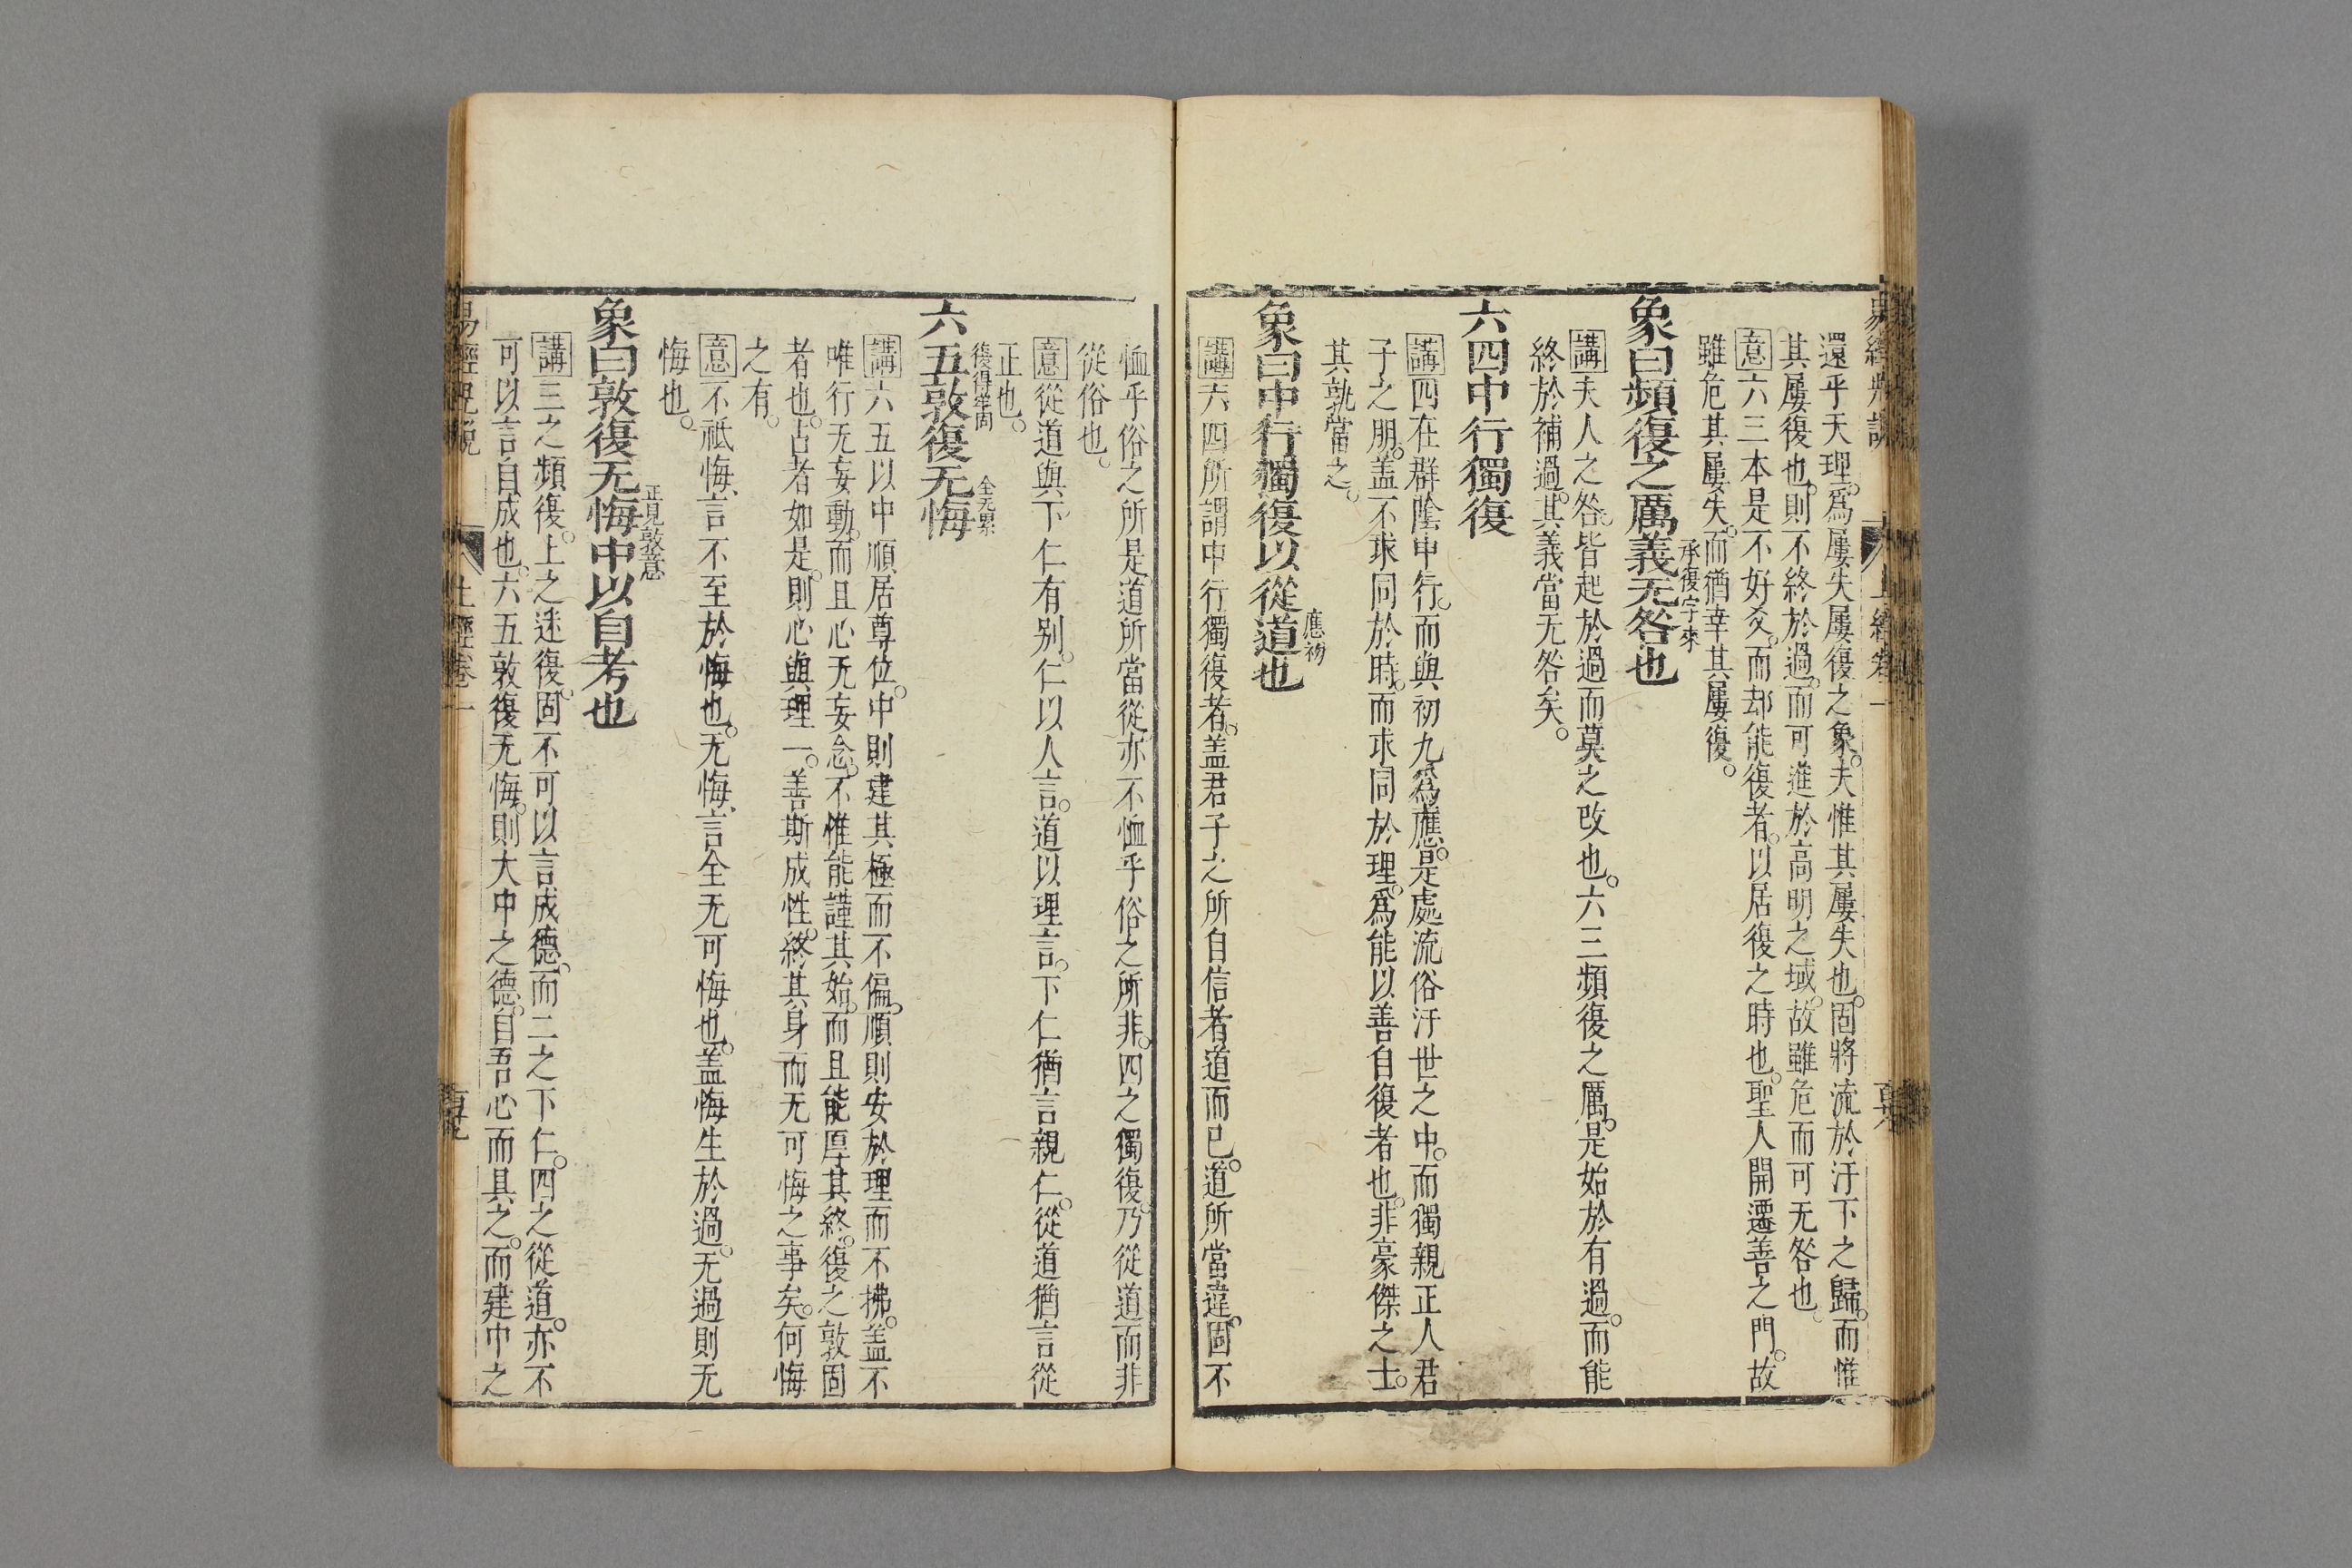 還乎天理。爲屢失屢復之象。夫惟其屢失也。固將流於汙下之歸。而惟
其屢復也。則不終於過。而可進於高明之域。故雖危而可无咎也。
意六三本是不好爻。而却能復者。以居復之時也。聖人開遷善之門。故
雖危其屢失。而猶幸其屢復。
承復字來
象曰頻復之厲義无咎也
講夫人之咎。皆起於過而莫之改也。六三頻復之厲。是始於有過。而能
終於補過。其義當无咎矣。
六四中行獨復
講四在群陰中行。而與初九爲應。是處流俗汙世之中。而獨親正人君
子之朋。盖不求同於時。而求同於理。爲能以善自復者也。非豪傑之士。
其孰當之。
應初
象曰中行獨復以從道也
講六四所謂中行獨復者。盖君子之所自信者道而已。道所當違。固不
恤乎俗之所是。道所當從。亦不恤乎俗之所非。四之獨復。乃從道而非
從俗也。
意從道與下仁有别。仁以人言。道以理言。下仁猶言親仁。從道猶言從
正也。
復得牢固
全无累
六五敦復无悔
講六五以中順居尊位。中則建其極而不偏。順則安於理而不拂。盖不
唯行无妄動。而且心无妄念。不惟能謹其始。而且能厚其終。復之敦固
者也。占者如是。則心與理一。善斯成性。終其身而无可悔之事矣。何悔
之有。
意不祗悔、言不至於悔也。无悔、言全无可悔也。盖悔生於過。无過則无
悔也。
正見敦意
象曰敦復无悔中以自考也
講三之頻復。上之迷復。固不可以言成德。而二之下仁。四之從道。亦不
可以言自成也。六五敦復无悔。則大中之德。自吾心而具之。而建中之
上經卷一